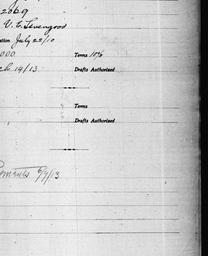 2669
V. C. Livengood
July 22/10
000 Terms 10%
ch 14/13 Drafts Authorized
Terms
Drafts Authorized
6/9/13